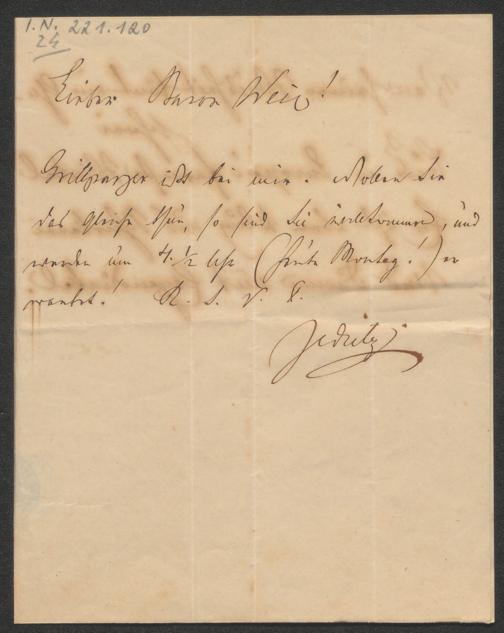 I.N. 221.120
24
Lieber Baron Weiß!
Grillparzer ißt bei mir. Wollen Sie
das gleiche thun, so sind Sie willkommen, und
werden um 4. 1/2 Uhr (heute Montag!) er
wartet! R. S. V. P.
Zedlitz